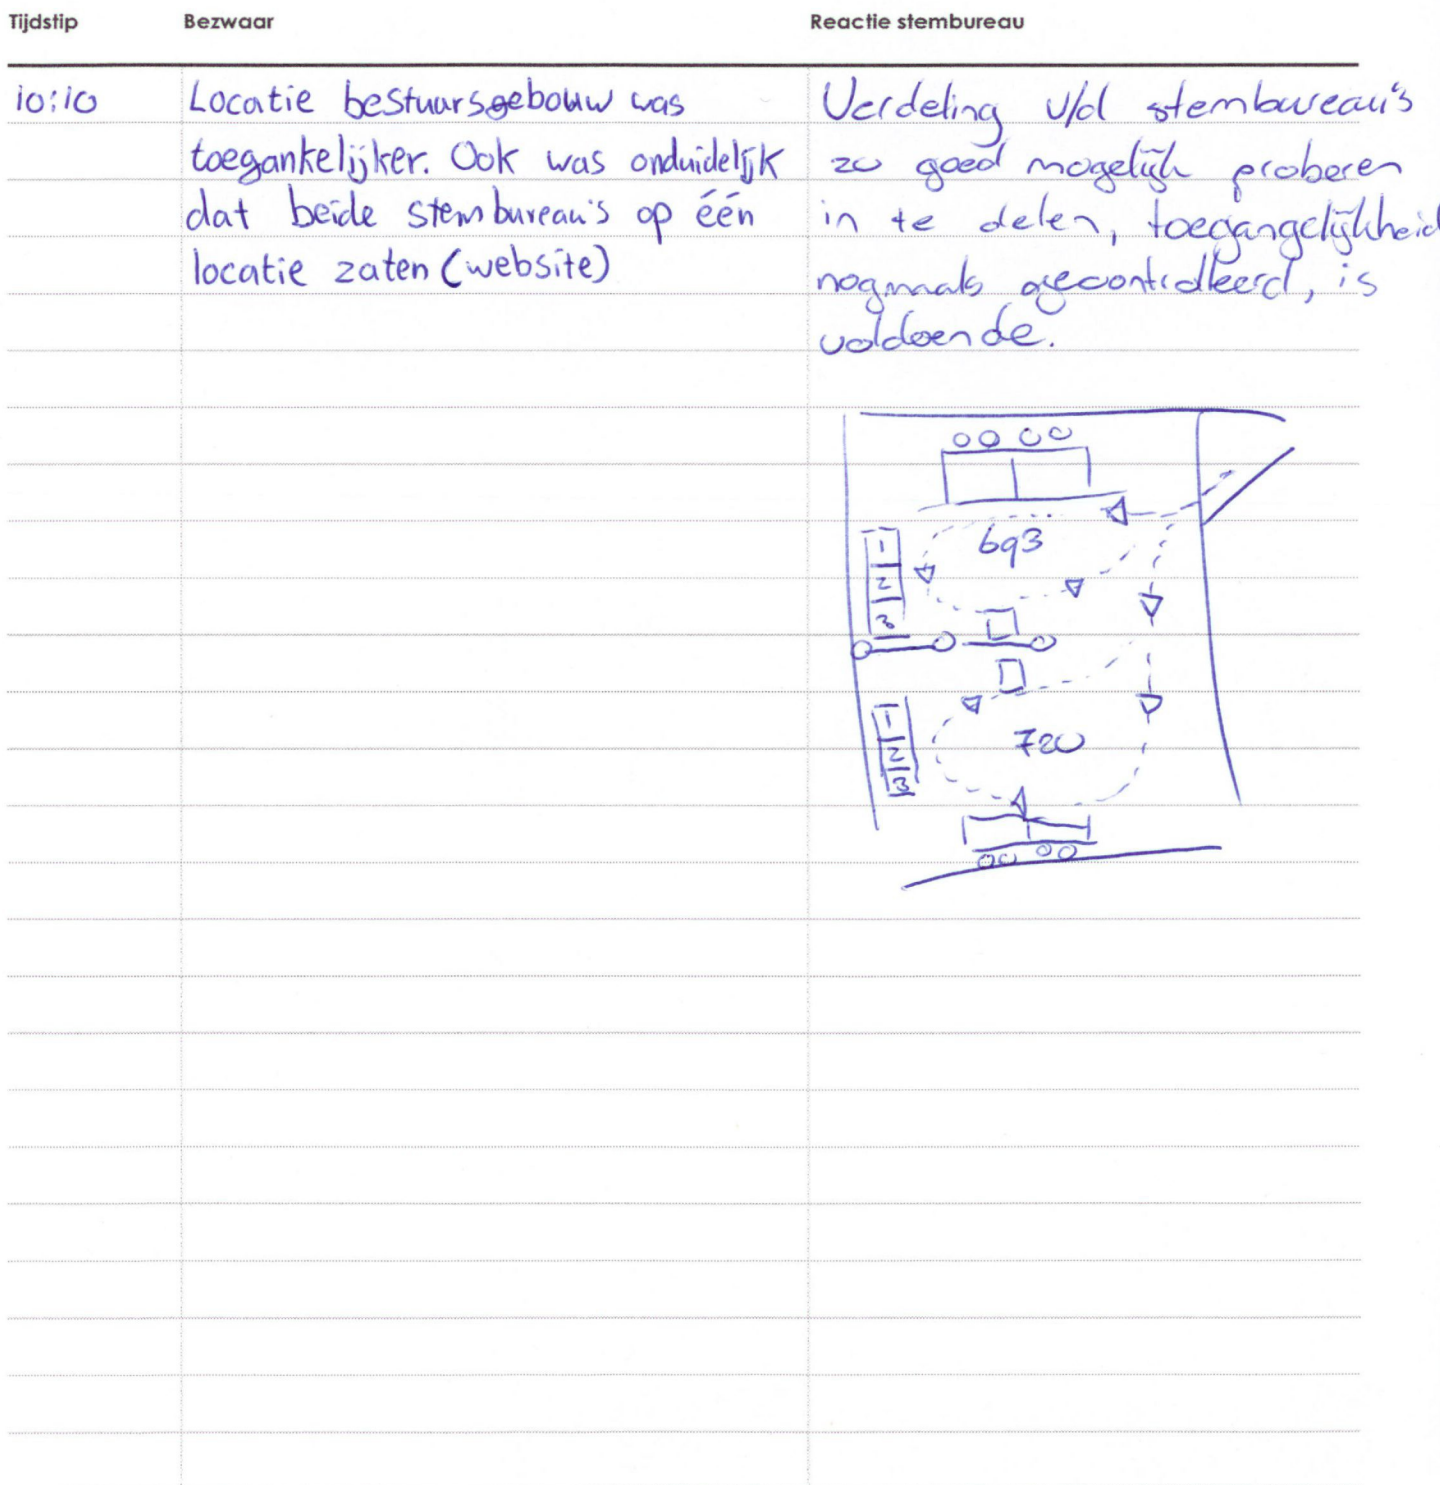 Tijdstip Bezwaar Reactie stembureau
10:10
Locatie bestuursgebouw was
toegankelijker. Ook was onduidelijk
dat beide stembureau's op één
locatie zaten (website)
Verdeling v/d stembureau's
zo goed mogelijk proberen
in te delen, toegangelijkheid
nogmaals gecontroleerd, is
voldoende.
693
1
2
3
720
1
2
3